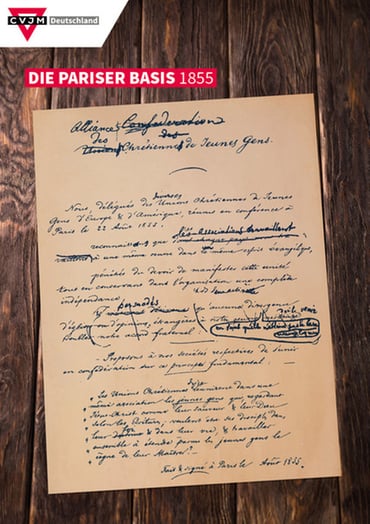 CVJM Deutschland
DIE PARISER BASIS 1855
Alliance Confédération
des
des Unions Chrétiennes de Jeunes Gens.
diverses
Nous délégués des Unions Chrétiennes de Jeunes
Gens d'Europe & d'Amérique, réunis en conférence à
Paris le 22 Août 1855,
reconnaissant que les associations travaillent
à une même œuvre dans le même esprit Évangélique,
pénétrés du devoir de manifester cette unité
tout en conservant dans l'organisation une complète
indépendance,
qu'aucune divergence
d'opinions, étrangères à
notre accord fraternel
Proposons à nos sociétés respectives de s'unir
en confédération sur ce principe fondamental :
Les Unions Chrétiennes dans une
même association les jeunes gens qui regardant
Jésus Christ comme leur Sauveur & leur Dieu
selon les Écritures, veulent être ses disciples dans
leur foi & dans leur vie, & travailler
ensemble à étendre parmi les jeunes gens le
règne de leur Maître.
Fait & signé à Paris le Août 1855.